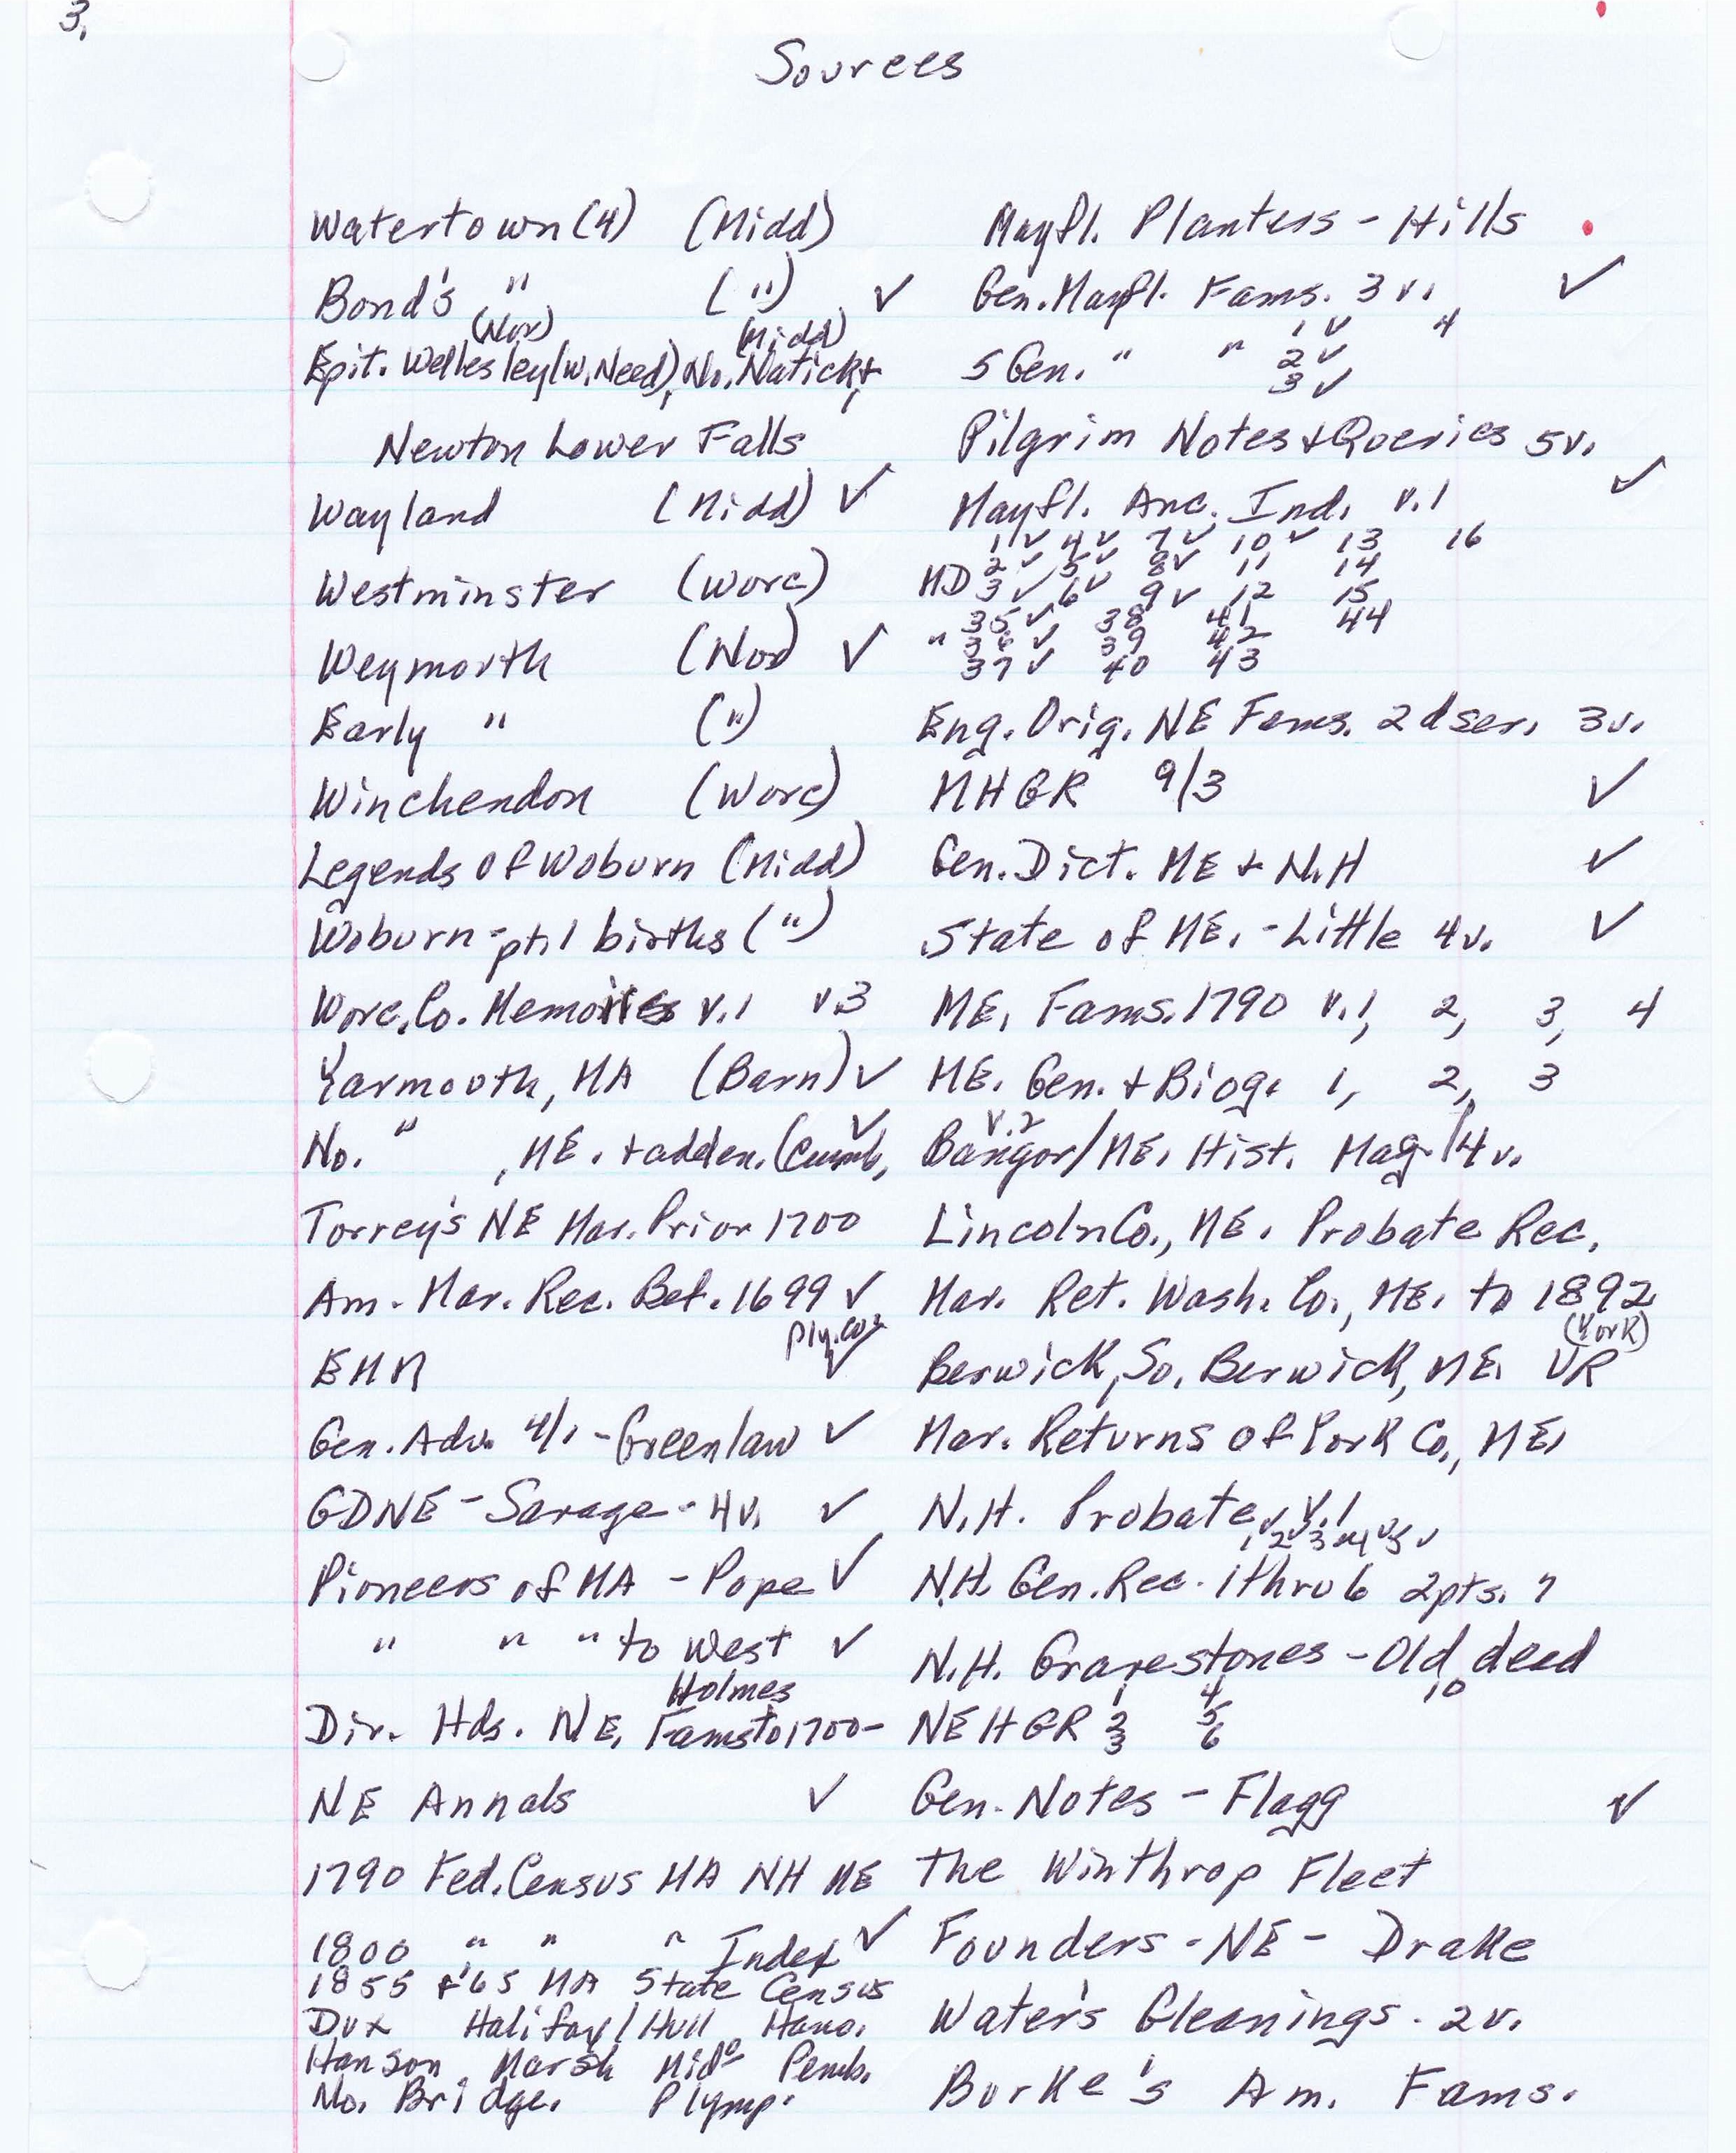 3.
Sources
Watertown (4) (Midd)
Bond's " (") ✓
(Nor) (Midd)
Epit. Wellesley (w. Need), No. Natick, +
Newton Lower Falls
Wayland (Midd) ✓
Westminster (Worc)
Weymouth (Nor) ✓
Early " (")
Winchendon (Worc)
Legends of Woburn (Midd)
Woburn - ptl births (")
Worc. Co. Memories v.1 v.3
Yarmouth, MA (Barn) ✓
No. " , ME. + adden. (Cumb, ✓
Torrey's NE Mar. Prior 1700
Am. Mar. Rec. Bef. 1699 ✓
Ply. Co.
EMM ✓
Gen. Adv. 4/1 - Greenlaw ✓
GDNE - Savage - 4 v. ✓
Pioneers of MA - Pope ✓
" " " to West ✓
Holmes
Dir. Hds. NE. Fams to 1700 -
NE Annals ✓
1790 Fed. Census MA NH ME
1800 " " " Index ✓
1855 & '65 MA State Census
Dux Halifax / Hull Hano.
Hanson Marsh Mido Pemb.
No. Bridge. Plymp.
Mayfl. Planters - Hills
Gen. Mayfl. Fams. 3 v. ✓
1 ✓ 4
5 Gen. " " 2 ✓
3 ✓
Pilgrim Notes + Queries 5 v.
Mayfl. Anc. Ind. v.1 ✓
1 ✓ 4 ✓ 7 ✓ 10 ✓ 13 16
2 ✓ 5 ✓ 8 ✓ 11 14
MD 3 ✓ 6 ✓ 9 ✓ 12 15
35 ✓ 38 41 44
" 36 ✓ 39 42
37 ✓ 40 43
Eng. Orig. NE Fams. 2d ser. 3 v.
MHGR 9/3 ✓
Gen. Dict. ME + N.H ✓
State of ME. - Little 4 v. ✓
ME. Fams. 1790 v.1, 2, 3, 4
ME. Gen. + Biog. 1, 2, 3
v.2
Bangor/ME. Hist. Mag. 14 v.
Lincoln Co., ME. Probate Rec.
Mar. Ret. Wash. Co., ME. to 1892
(York)
Berwick, So. Berwick, ME. VR
Mar. Returns of York Co., ME.
N.H. Probate v.1
1 ✓ 2 ✓ 3 ✓ 4 ✓ 5 ✓
N.H. Gen. Rec. 1 thru 6 2 pts. 7
N.H. Gravestones - Old dead
1 4 10
NEHGR 2 5
3 6
Gen. Notes - Flagg ✓
The Winthrop Fleet
Founders - NE - Drake
Water's Gleanings - 2 v.
Burke's Am. Fams.